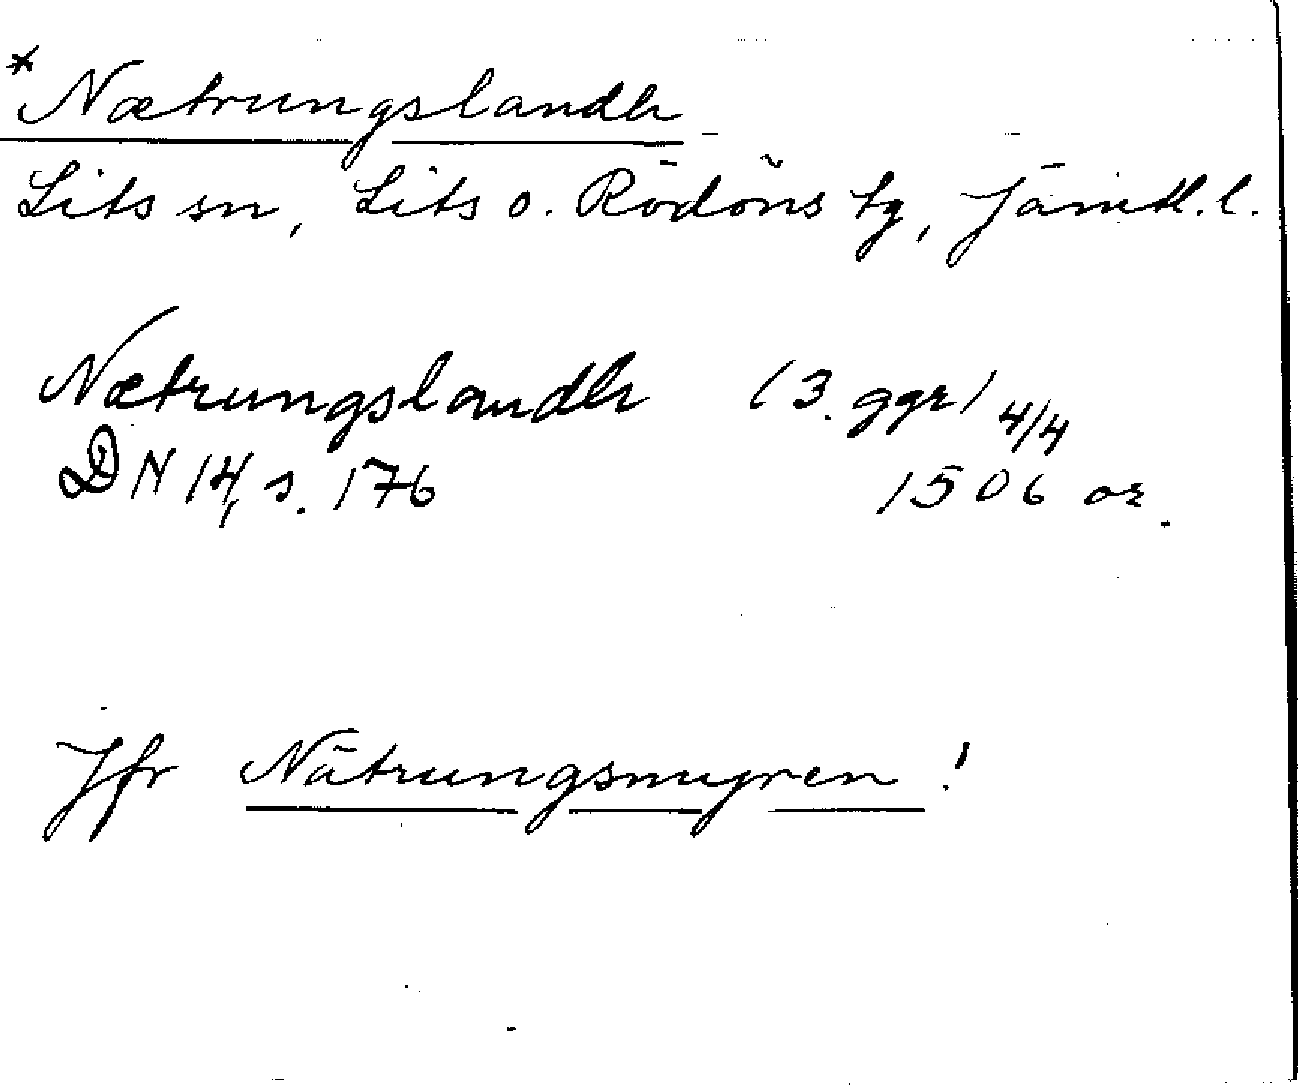 *Nætrungslandh
Lits sn, Lits o. Rödöns tg, Jämtl. l.
Nætrungslandh (3. ggr) 4/4
DN 14, s. 176 1506 or.
Jfr Nätrungsmyren!